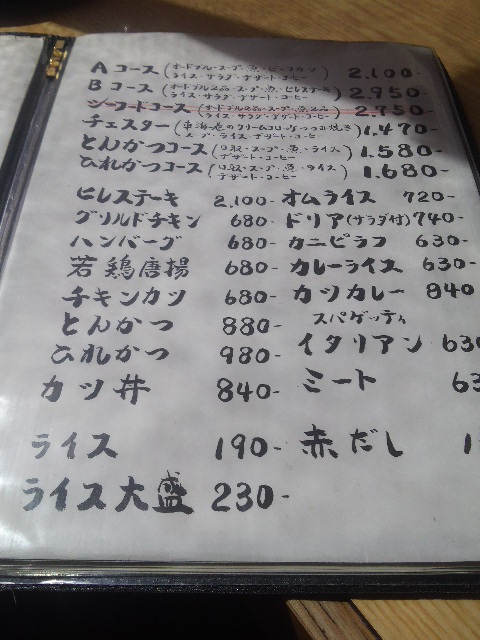 Aコース(オードブル・スープ・魚・ビーフカツ ライス・サラダ・デザート・コーヒー) 2,100-
Bコース(オードブル2品・スープ・魚・ヒレステーキ ライス・サラダ・デザート・コーヒー) 2,950-
シーフードコース(オードブル2品・スープ・魚2品 ライス・サラダ・デザート・コーヒー) 2,750-
チェスター(東海老のクリームコロッケ・つつみ焼き スープ・ライス・デザート・コーヒー) 1,470-
とんかつコース(口取・スープ・魚・ライス デザート・コーヒー) 1,580-
ひれかつコース(口取・スープ・魚・ライス デザート・コーヒー) 1,680-
ヒレステーキ 2,100- オムライス 720-
グリルドチキン 680- ドリア(サラダ付) 740-
ハンバーグ 680- カニピラフ 630-
若鶏唐揚 680- カレーライス 630-
チキンカツ 680- カツカレー 840
とんかつ 880- スパゲッティ
ひれかつ 980- イタリアン 630
カツ丼 840- ミート 63
ライス 190- 赤だし 1
ライス大盛 230-